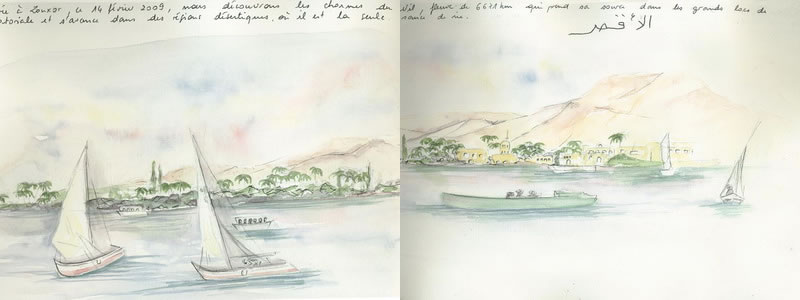 à Louxor, ce 14 février 2009, nous découvrons les charmes du Nil, fleuve de 6671 km qui prend sa source dans les grands lacs de
et s'avance dans des régions désertiques, où il est la seule source de vie.
الأقصر